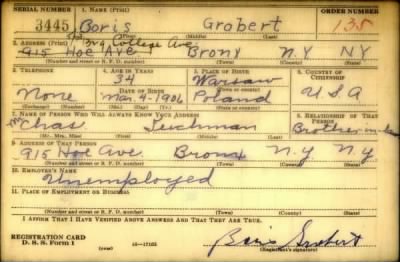 SERIAL NUMBER 1. NAME (Print) ORDER NUMBER
3445 Boris Grobert 135
(First) (Middle) (Last)
College Ave
2. ADDRESS (Print)
915 Hoe Ave Bronx N.Y. NY
(Number and street or R. F. D. number) (Town) (County) (State)
3. TELEPHONE 4. AGE IN YEARS 5. PLACE OF BIRTH 6. COUNTRY OF CITIZENSHIP
34 Warsaw
None DATE OF BIRTH Poland USA
Mar. 4-1906
(Exchange) (Number) (Mo.) (Day) (Yr.) (State or country)
7. NAME OF PERSON WHO WILL ALWAYS KNOW YOUR ADDRESS 8. RELATIONSHIP OF THAT PERSON
Mr Chas. Brother in law
(Mr., Mrs., Miss) (First) (Middle) (Last)
9. ADDRESS OF THAT PERSON
915 Hoe Ave. Bronx N.Y. NY
(Number and street or R. F. D. number) (Town) (County) (State)
10. EMPLOYER'S NAME
Unemployed
11. PLACE OF EMPLOYMENT OR BUSINESS
(Number and street or R. F. D. number) (Town) (County) (State)
I AFFIRM THAT I HAVE VERIFIED ABOVE ANSWERS AND THAT THEY ARE TRUE.
REGISTRATION CARD
D. S. S. Form 1 16-17105 Boris Grobert
(Registrant's signature)